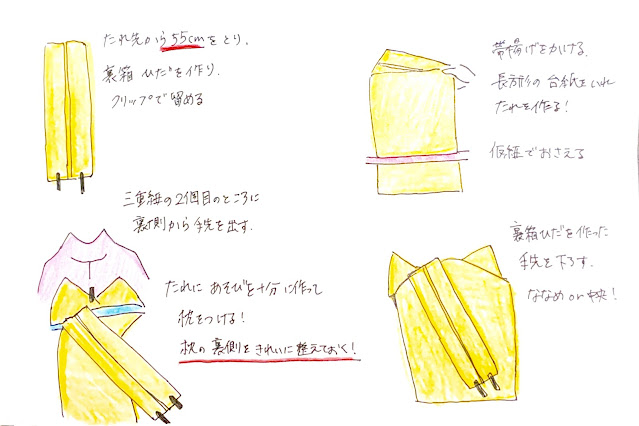 たれ先から55cmをとり、
裏箱ひだを作り
クリップで留める
三重紐の2個目のところに
裏側から手先を出す.
たれにあそびを十分に作って
枕をつける!
枕の裏側をきれいに整えておく!
帯揚げをかける.
長方形の台紙をいれ
たれを作る!
仮紐でおさえる
裏箱ひだを作った
手先を下ろす.
ななめor中央!